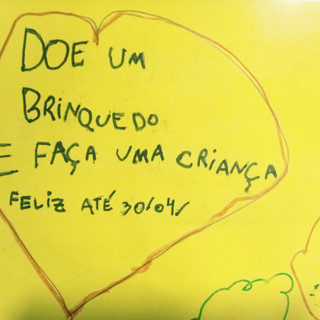 DOE UM
BRINQUEDO
E FAÇA UMA CRIANÇA
FELIZ ATÉ 30/04/